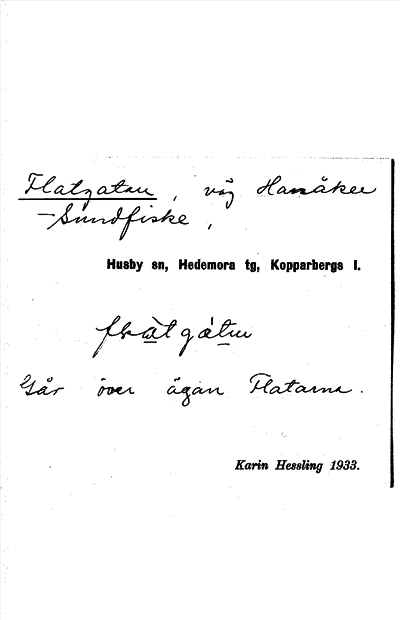 Flatgatan, väg Hamåker
–Sundfiske,
Husby sn, Hedemora tg, Kopparbergs l.
Går över ägan Flatarna.
Karin Hessling 1933.